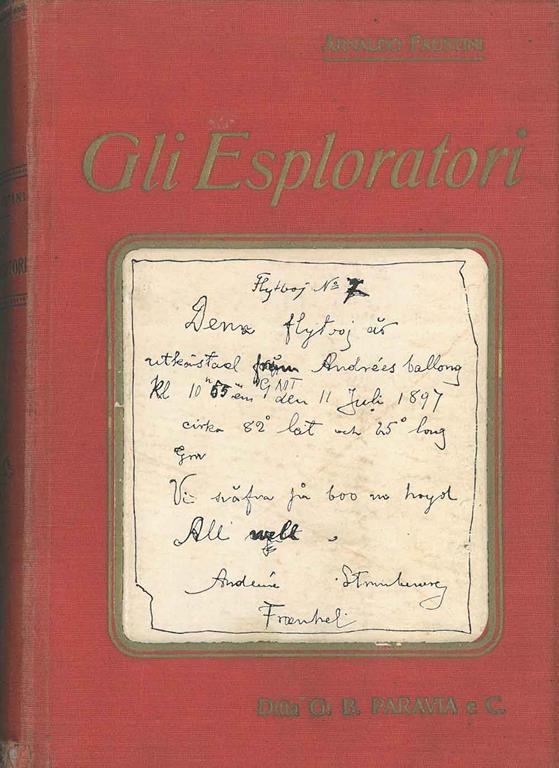 ARNALDO FAUSTINI
Gli Esploratori
Flytboj No 7
Dena flytboj är
utkastad från Andrées ballong
Kl 10 55 em GMT den 11 Juli 1897
cirka 82° lat och 25° long
Grw
Vi sväfva på 600 m hoyd
All well.
Andrée Strindberg
Frænkel
Ditta G. B. PARAVIA e C.